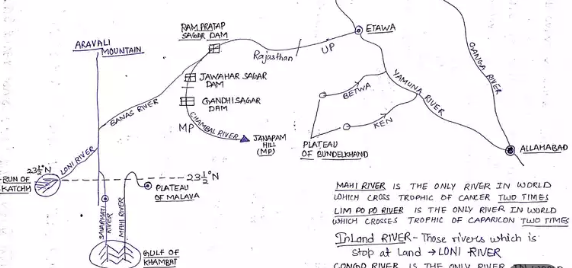 RAM PRATAP
SAGAR DAM
ETAWA
ARAVALI
MOUNTAIN
Rajasthan
UP
GANGA RIVER
JAWAHAR SAGAR
DAM
GANDHISAGAR
DAM
BANAS RIVER
BETWA
YAMUNA RIVER
KEN
CHAMBAL RIVER
MP
JANAPAM
HILL
(MP)
PLATEAU
OF BUNDELKHAND
ALLAHABAD
LONI RIVER
23½°N
RUN OF
KATCHH
23½°N
PLATEAU
OF MALAVA
SABARMATI
RIVER
MAHI RIVER
GULF OF
KHAMBAT
MAHI RIVER IS THE ONLY RIVER IN WORLD
WHICH CROSS TROPHIC OF CANCER TWO TIMES
LIM PO PO RIVER IS THE ONLY RIVER IN WORLD
WHICH CROSSES TROPHIC OF CAPARICON TWO TIMES
InLand RIVER - Those rivers which is
stop at Land → LONI RIVER
CONGO RIVER IS THE ONLY RIVER